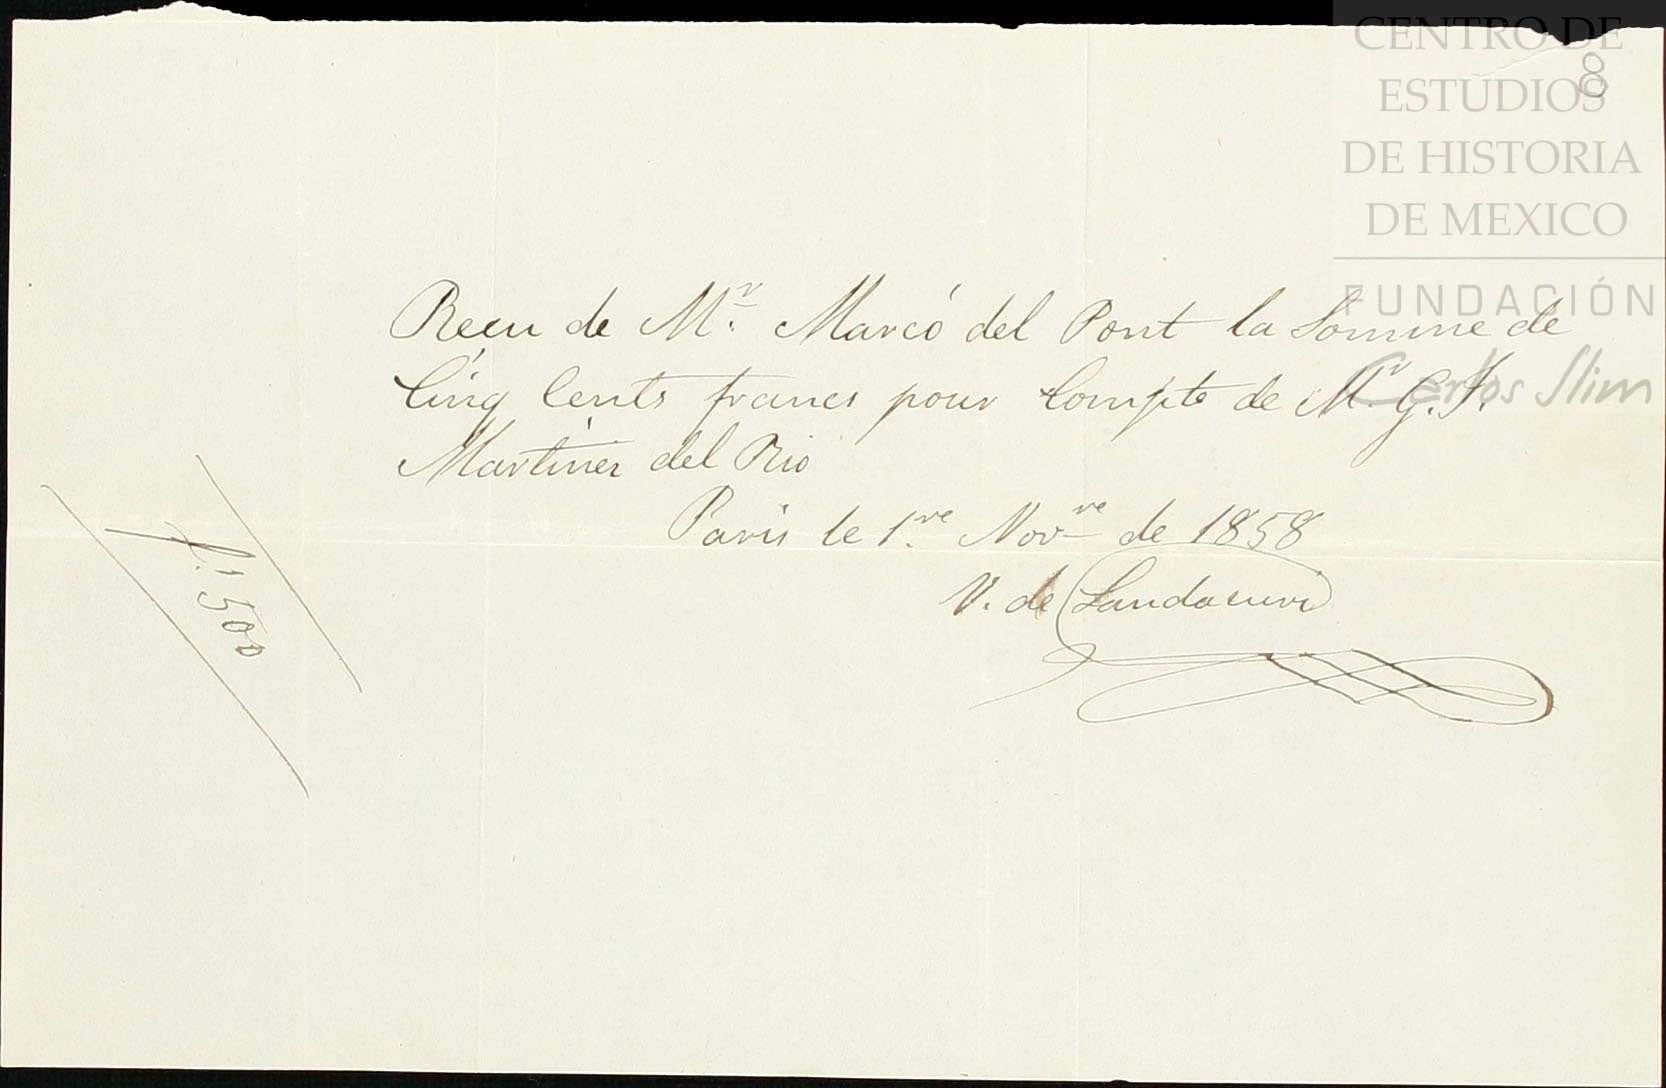 CENTRO DE
ESTUDIOS
DE HISTORIA
DE MEXICO
FUNDACIÓN
Carlos Slim
8
Recu de Mr. Marcó del Pont la Somme de
Cinq Cents francs pour Compte de Mr G. J.
Martinez del Rio
Paris le 1re Novre de 1858
V. de Landa
f. 500